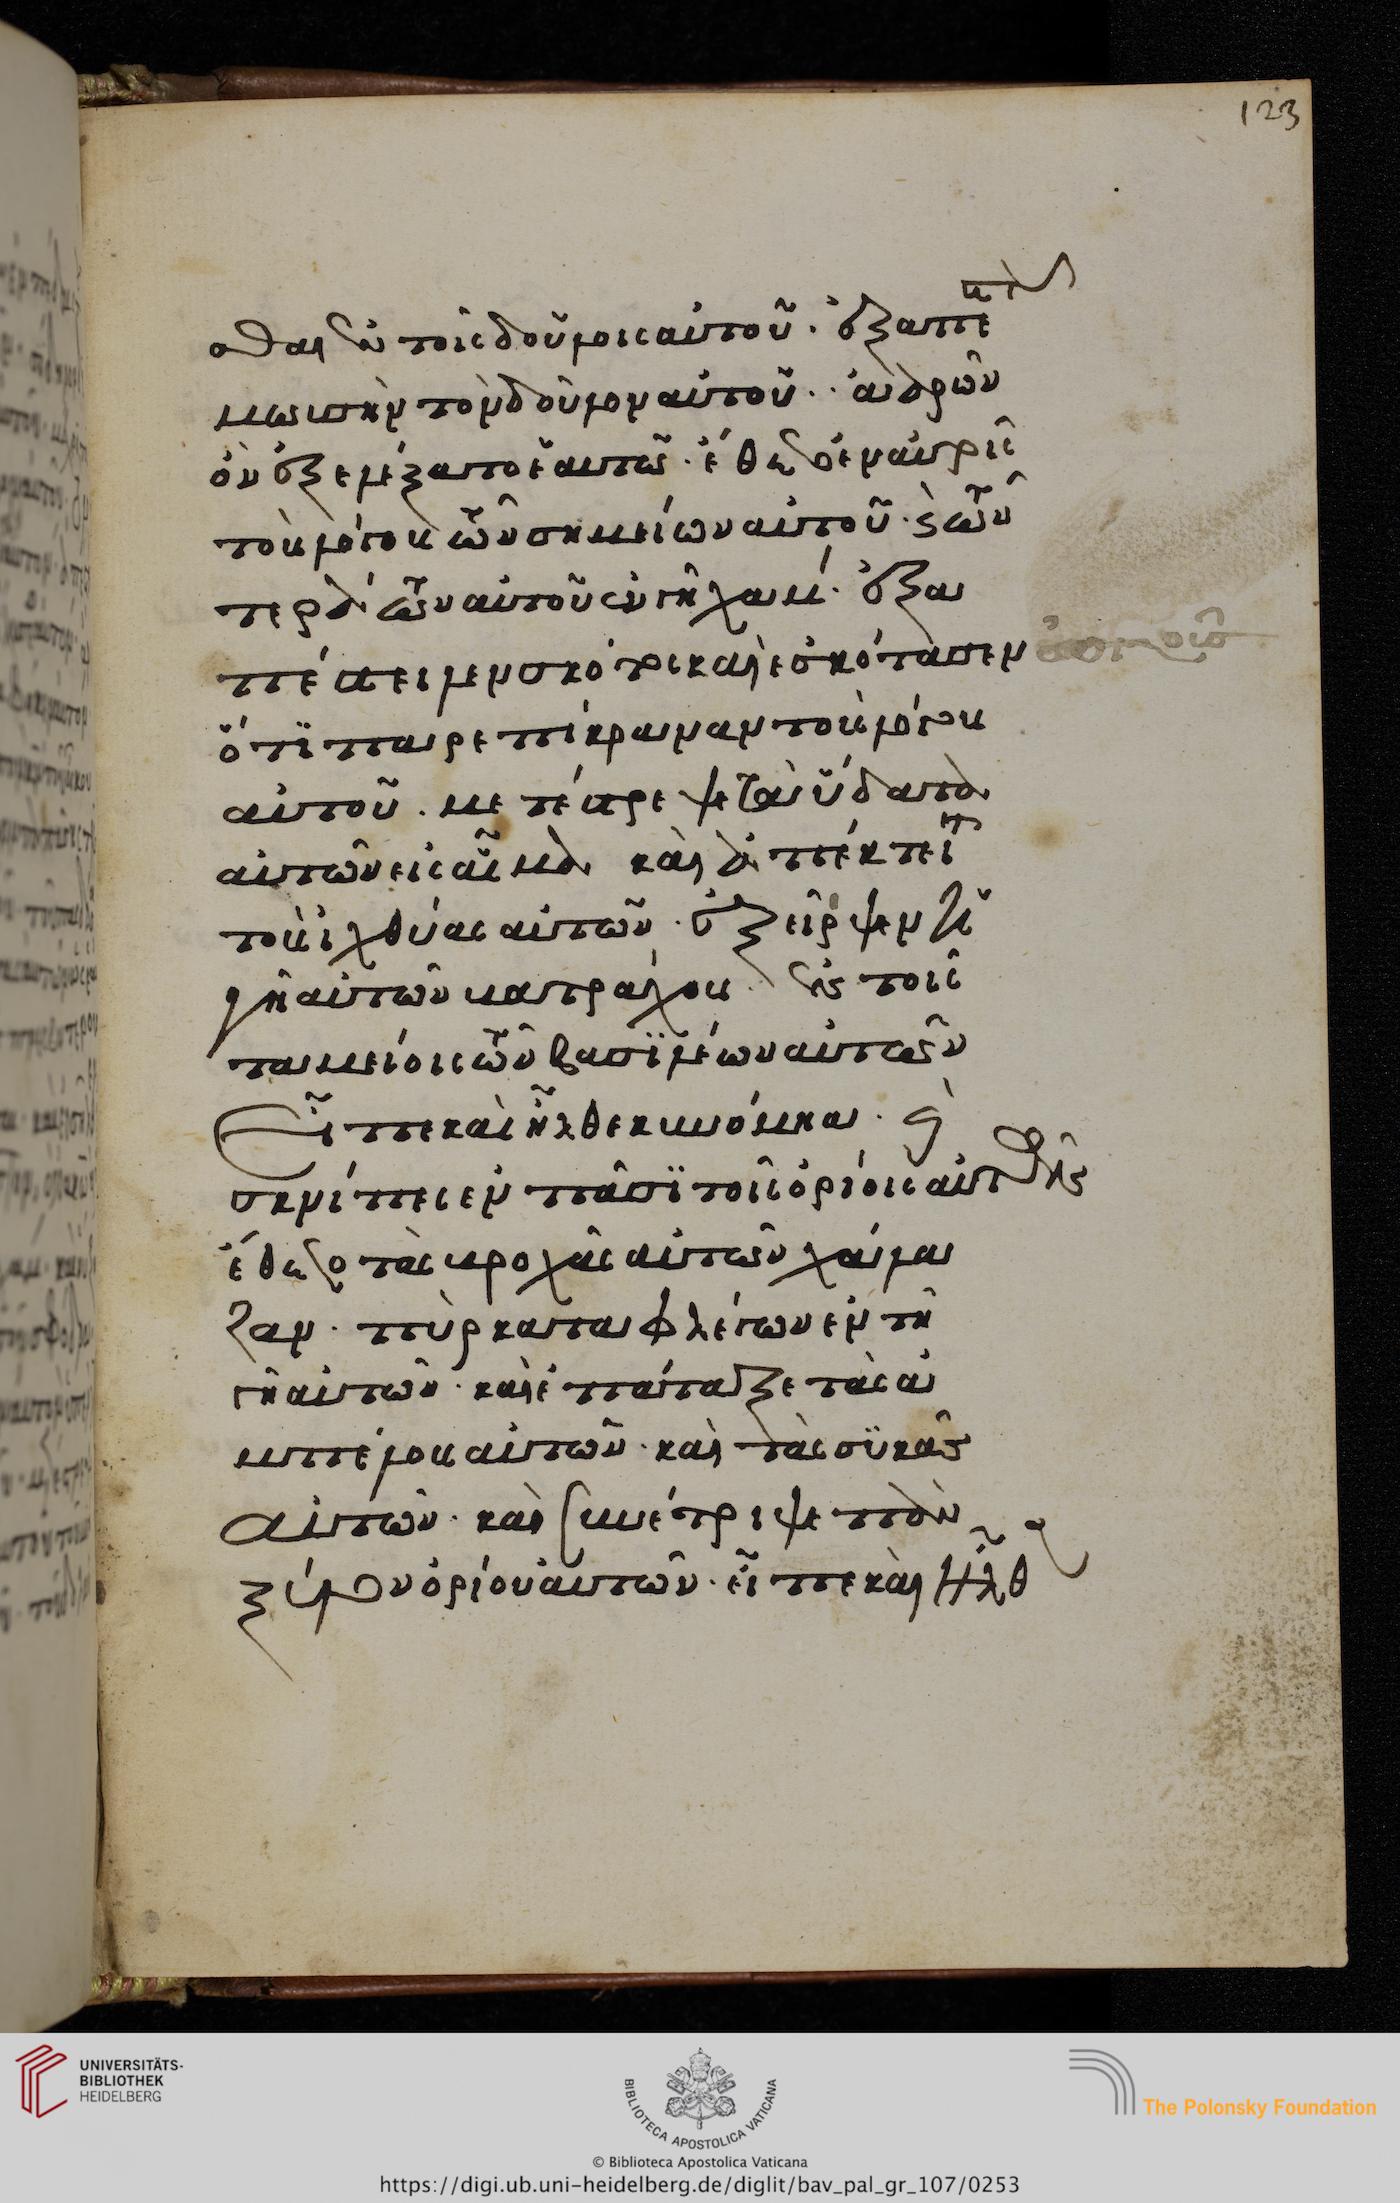 123
σθαι ἐν τοῖς δούλοις αὐτοῦ· ἐξαπέστειλε
μωυσῆν τὸν δοῦλον αὐτοῦ· ἀαρὼν
ὃν ἐξελέξατο ἑαυτῷ· ἔθετο ἐν αὐτοῖς
τοὺς λόγους τῶν σημείων αὐτοῦ· καὶ τῶν
τεράτων αὐτοῦ ἐν γῆ χάμ· ἐξα
πέστειλεν σκότος καὶ ἐσκότασεν
ὅτι παρεπίκραναν τοὺς λόγους
αὐτοῦ· μετέστρεψε τὰ ὕδατα
αὐτῶν εἰς αἷμα καὶ ἀπέκτεινε
τοὺς ἰχθύας αὐτῶν· ἐξεῖρψεν ἡ
γῆ αὐτῶν βατράχους ἐν τοῖς
ταμείοις τῶν βασιλέων αὐτῶν
Εἶπε καὶ ἦλθε κυνόμυια· καὶ
σκνίπες ἐν πᾶσι τοῖς ὁρίοις αὐτῶν
ἔθετο τὰς βροχὰς αὐτῶν χάλα
ζαν· πῦρ καταφλέγων ἐν τῆ
γῆ αὐτῶν· καὶ ἐπάταξε τὰς ἀ
μπέλους αὐτῶν· καὶ τὰς συκᾶς
αὐτῶν· καὶ συνέτριψε πᾶν
ξύλον ὁρίου αὐτῶν· εἶπε καὶ ἦλθε
UNIVERSITÄTS-
BIBLIOTHEK
HEIDELBERG
BIBLIOTECA APOSTOLICA VATICANA
The Polonsky Foundation
© Biblioteca Apostolica Vaticana
https://digi.ub.uni-heidelberg.de/diglit/bav_pal_gr_107/0253